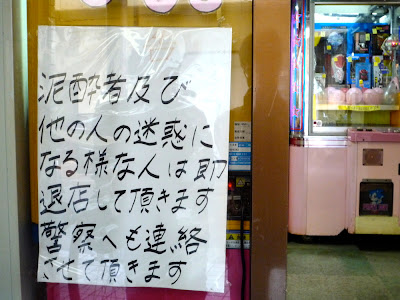 泥酔者及び
他の人の迷惑に
なる様な人は即
退店して頂きます
警察へも連絡
させて頂きます